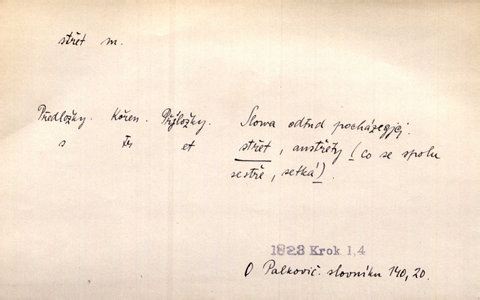 střet m.
Předložky. Kořen. Přjložky. Slowa odtud pocházegjcj.
s tr et střet, austřety (co se spolu
sestře, setká).
1823 Krok I,4
O Palkovič. slovníku 140,20.